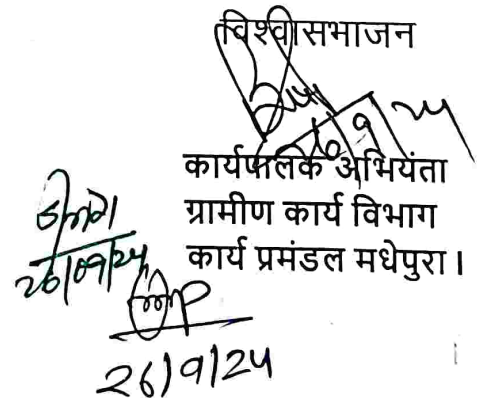 विश्वासभाजन
26/9/24
कार्यपालक अभियंता
ग्रामीण कार्य विभाग
कार्य प्रमंडल मधेपुरा।
26/09/24
26/9/24